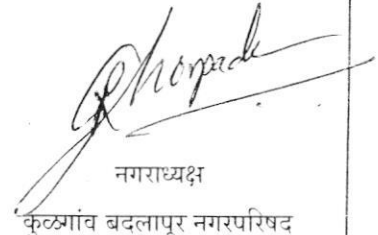 Ghorpade
नगराध्यक्ष
कुळगांव बदलापूर नगरपरिषद